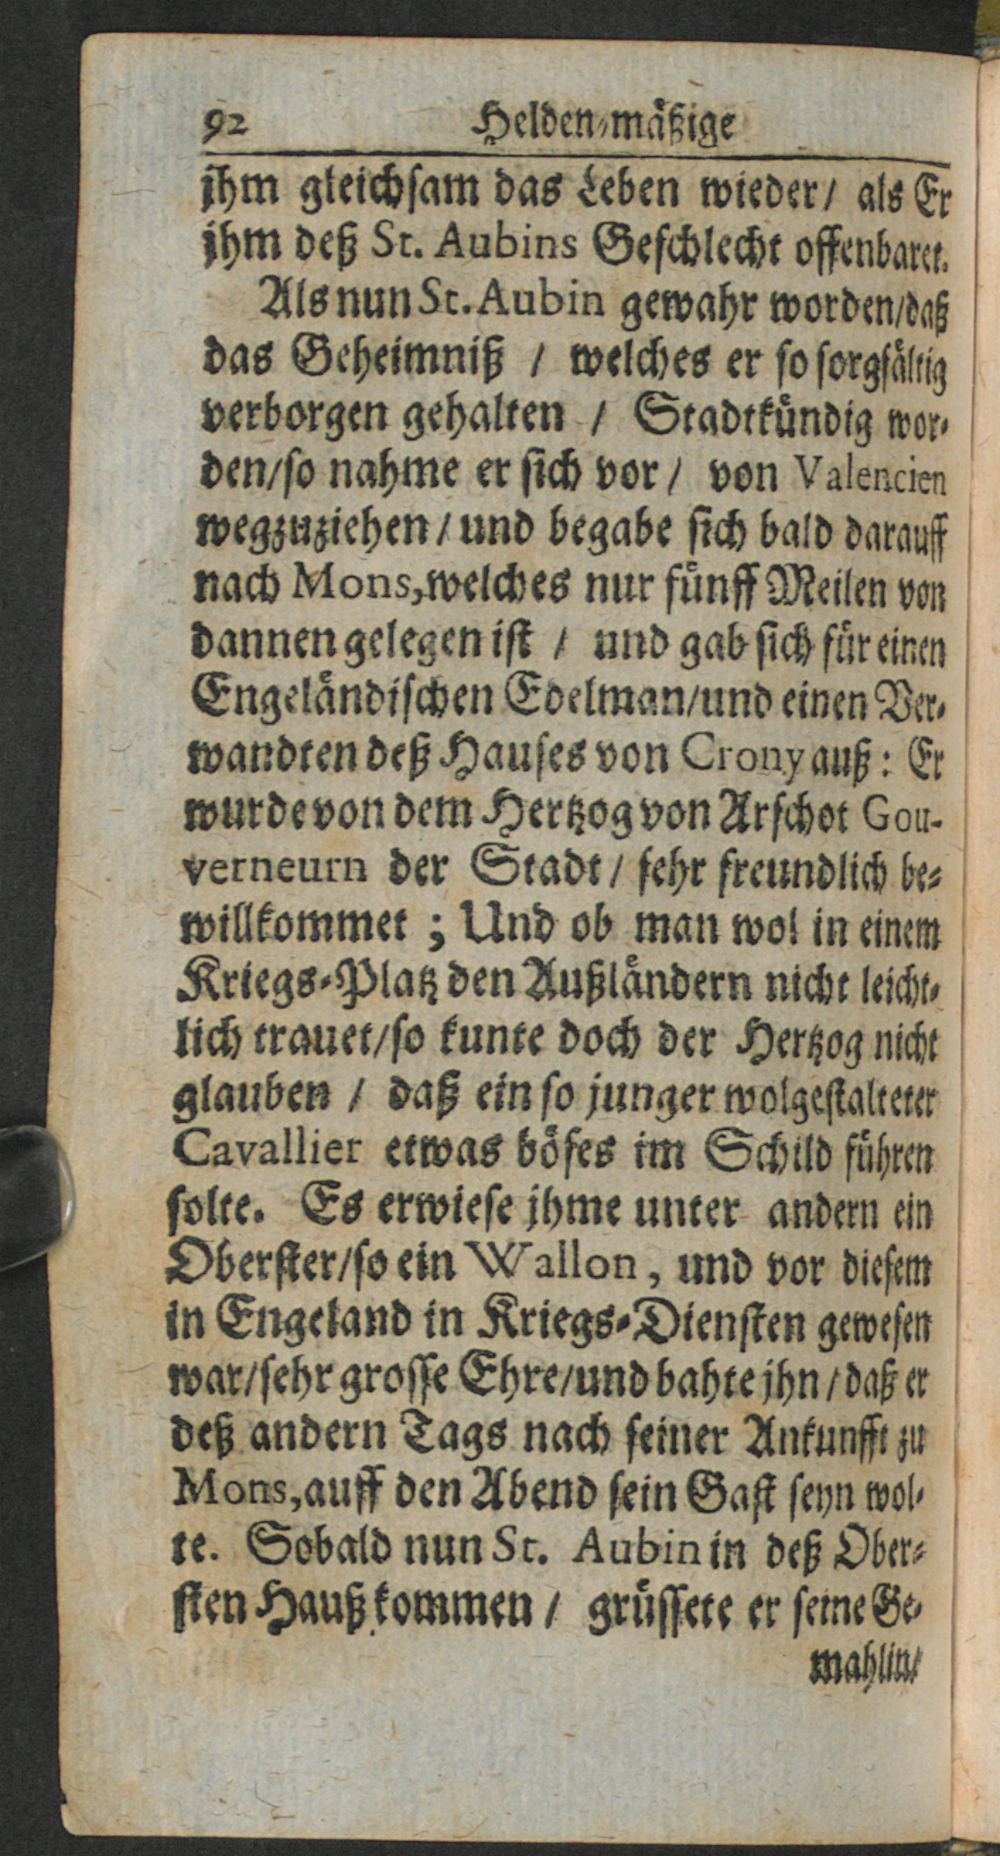 92 Helden-mäßige
jhm gleichsam das Leben wieder/ als Er
jhm deß St. Aubins Geschlecht offenbaret.
Als nun St. Aubin gewahr worden/daß
das Geheimniß / welches er so sorgfältig
verborgen gehalten / Stadtkündig wor-
den/so nahme er sich vor/ von Valencien
wegzuziehen/und begabe sich bald darauff
nach Mons,welches nur fünff Meilen von
dannen gelegen ist / und gab sich für einen
Engeländischen Edelman/und einen Ver-
wandten deß Hauses von Crony auß: Er
wurde von dem Hertzog von Arschot Gou-
verneurn der Stadt/ sehr freundlich be-
willkommet ; Und ob man wol in einem
Kriegs-Platz den Außländern nicht leicht-
lich trauet/so kunte doch der Hertzog nicht
glauben / daß ein so junger wolgestalteter
Cavallier etwas böses im Schild führen
solte. Es erwiese jhme unter andern ein
Oberster/so ein Wallon, und vor diesem
in Engeland in Kriegs-Diensten gewesen
war/sehr grosse Ehre/und bahte jhn/daß er
deß andern Tags nach seiner Ankunfft zu
Mons,auff den Abend sein Gast seyn wol-
te. Sobald nun St. Aubin in deß Ober-
sten Hauß kommen / grüssete er seine Ge-
mahlin/